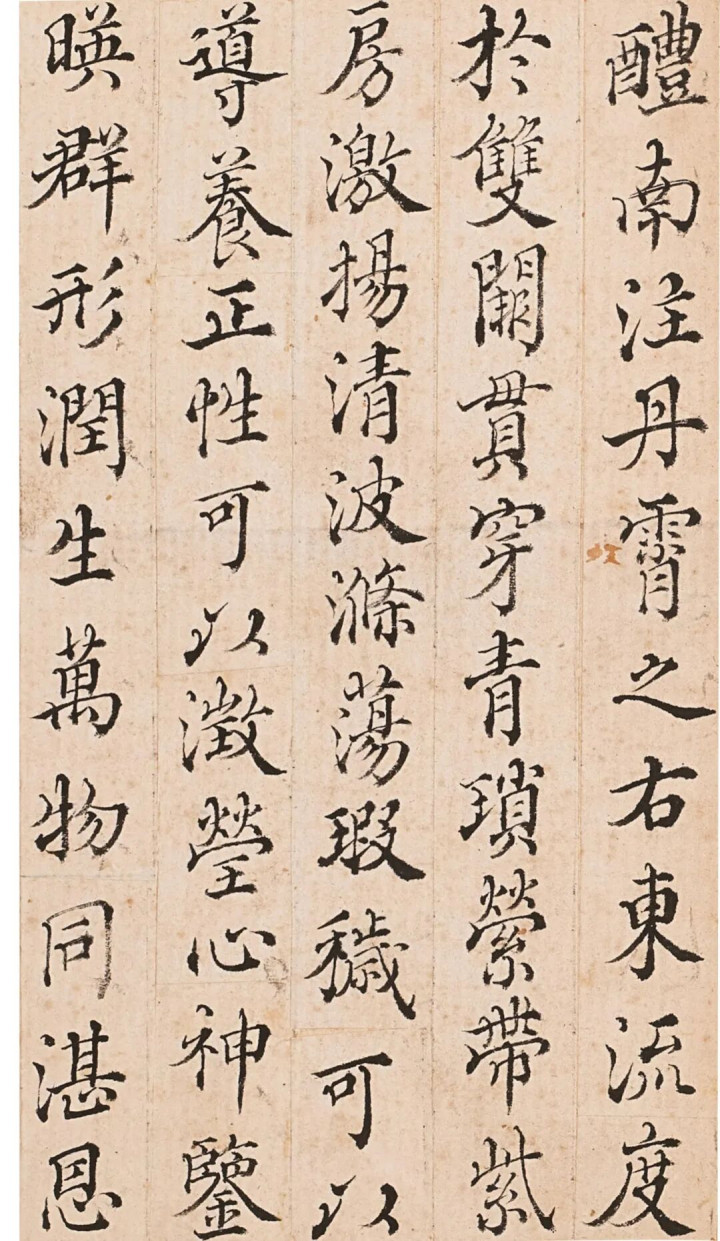 醴南注丹霄之右東流度
於雙闕貫穿青瑣縈帶紫
房激揚清波滌蕩瑕穢可以
導養正性可以澂瑩心神鑒
暎群形潤生萬物同湛恩